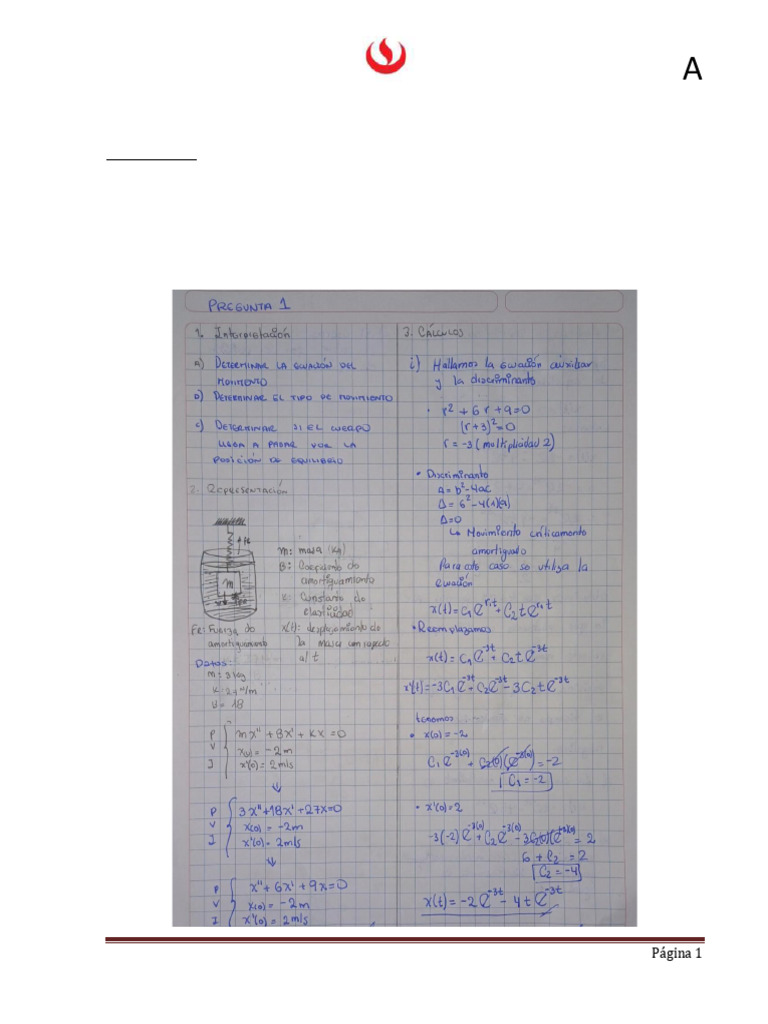 A
PREGUNTA 1
1. Interpretación
a) DETERMINAR LA ECUACIÓN DEL
MOVIMIENTO
b) DETERMINAR EL TIPO DE MOVIMIENTO
c) DETERMINAR SI EL CUERPO
LLEGA A PASAR POR LA
POSICIÓN DE EQUILIBRIO
2. Representación
m
m: masa (kg)
B: Coeficiente de
amortiguamiento
K: Constante de
elasticidad
FR: Fuerza de
amortiguamiento
x(t): desplazamiento de
la masa con respecto
a/ t
Datos:
m = 3 kg
K: 27 N/m
= 18
P mx'' + 8x' + Kx = 0
V x(0) = -2m
I x'(0) = 2m/s
↓
P 3x'' + 18x' + 27x = 0
V x(0) = -2m
I x'(0) = 2m/s
↓
P x'' + 6x' + 9x = 0
V x(0) = -2m
I x'(0) = 2m/s
3. CÁLCULOS
i) Hallamos la ecuación auxiliar
y la discriminante
• r² + 6r + 9 = 0
(r+3)² = 0
r = -3 (multiplicidad 2)
• Discriminante
Δ = b² - 4ac
Δ = 6² - 4(1)(9)
Δ = 0
↳ Movimiento críticamente
amortiguado
Para este caso se utiliza la
ecuación
x(t) = C₁e^r₁t + C₂te^r₁t
• Reemplazamos
x(t) = C₁e^-3t + C₂te^-3t
x'(t) = -3C₁e^-3t + C₂e^-3t - 3C₂te^-3t
tenemos
• x(0) = -2
C₁e^-3(0) + C₂(0)(e^-3(0)) = -2
C₁ = -2
• x'(0) = 2
-3(-2)e^-3(0) + C₂e^-3(0) - 3C₂(0)(e^-3(0)) = 2
6 + C₂ = 2
C₂ = -4
x(t) = -2e^-3t - 4te^-3t
Página 1